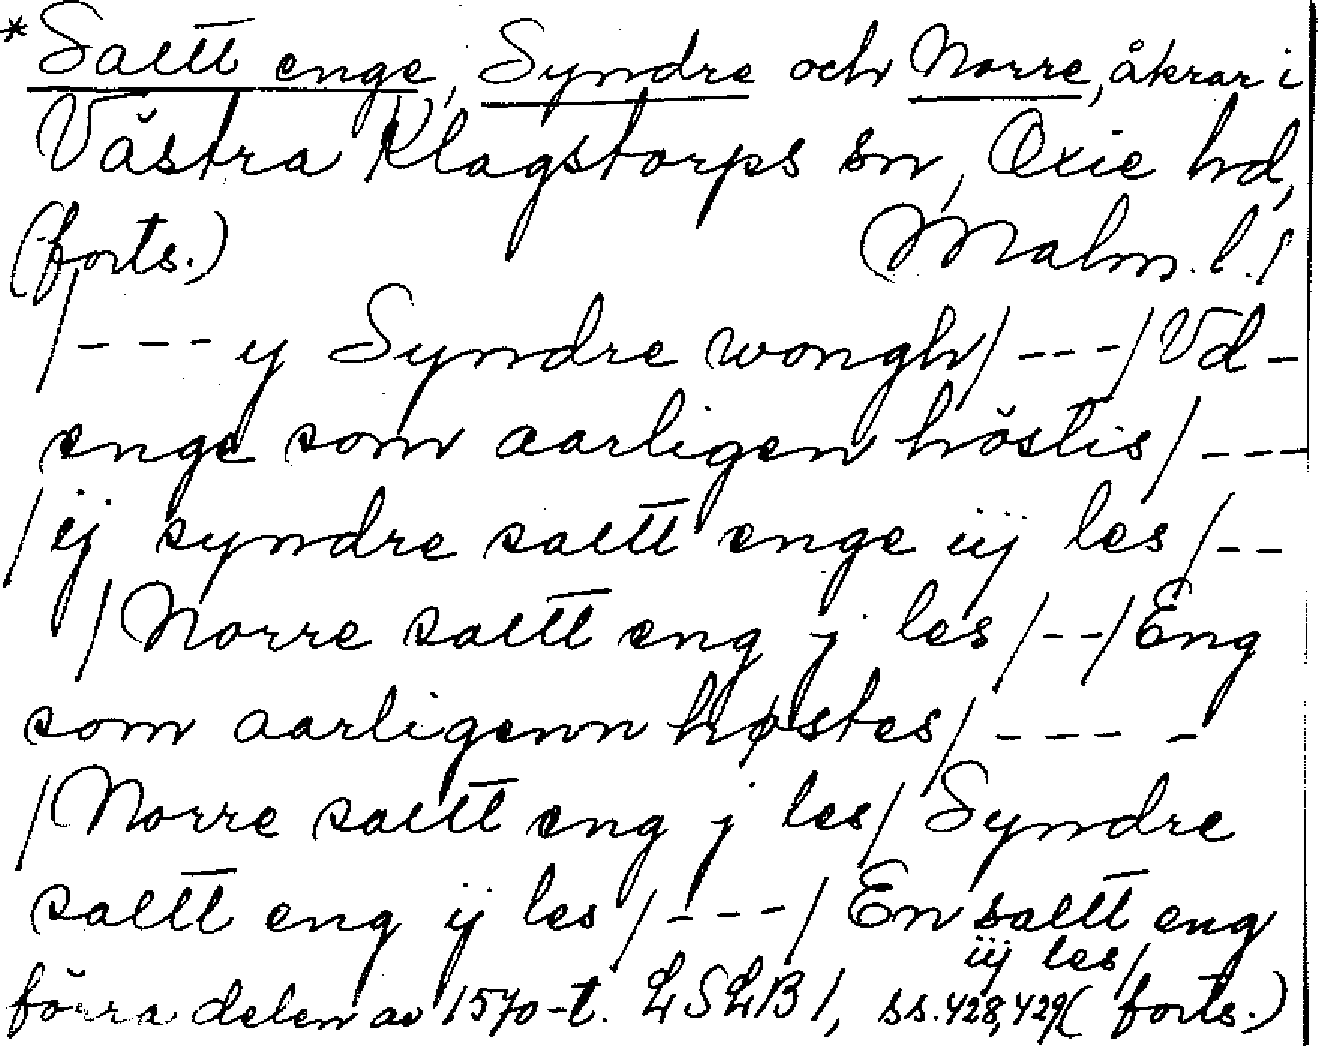 *Saltt enge, Syndre och Norre, åkrar i
Västra Klagstorps sn, Oxie hd,
(forts.) Malm. l./
/---y Syndre wongh/---/Vd-
enge som aarligen höstis/---
/ij syndre saltt enge iij les/--
/Norre saltt eng j les/--/Eng
som aarligenn høstes/----
/Norre saltt eng j les/Syndre
saltt eng ij les/---/En saltt eng
iij les/
förra delen av 1570-t. LSLB 1, ss. 428, 429 (forts.)